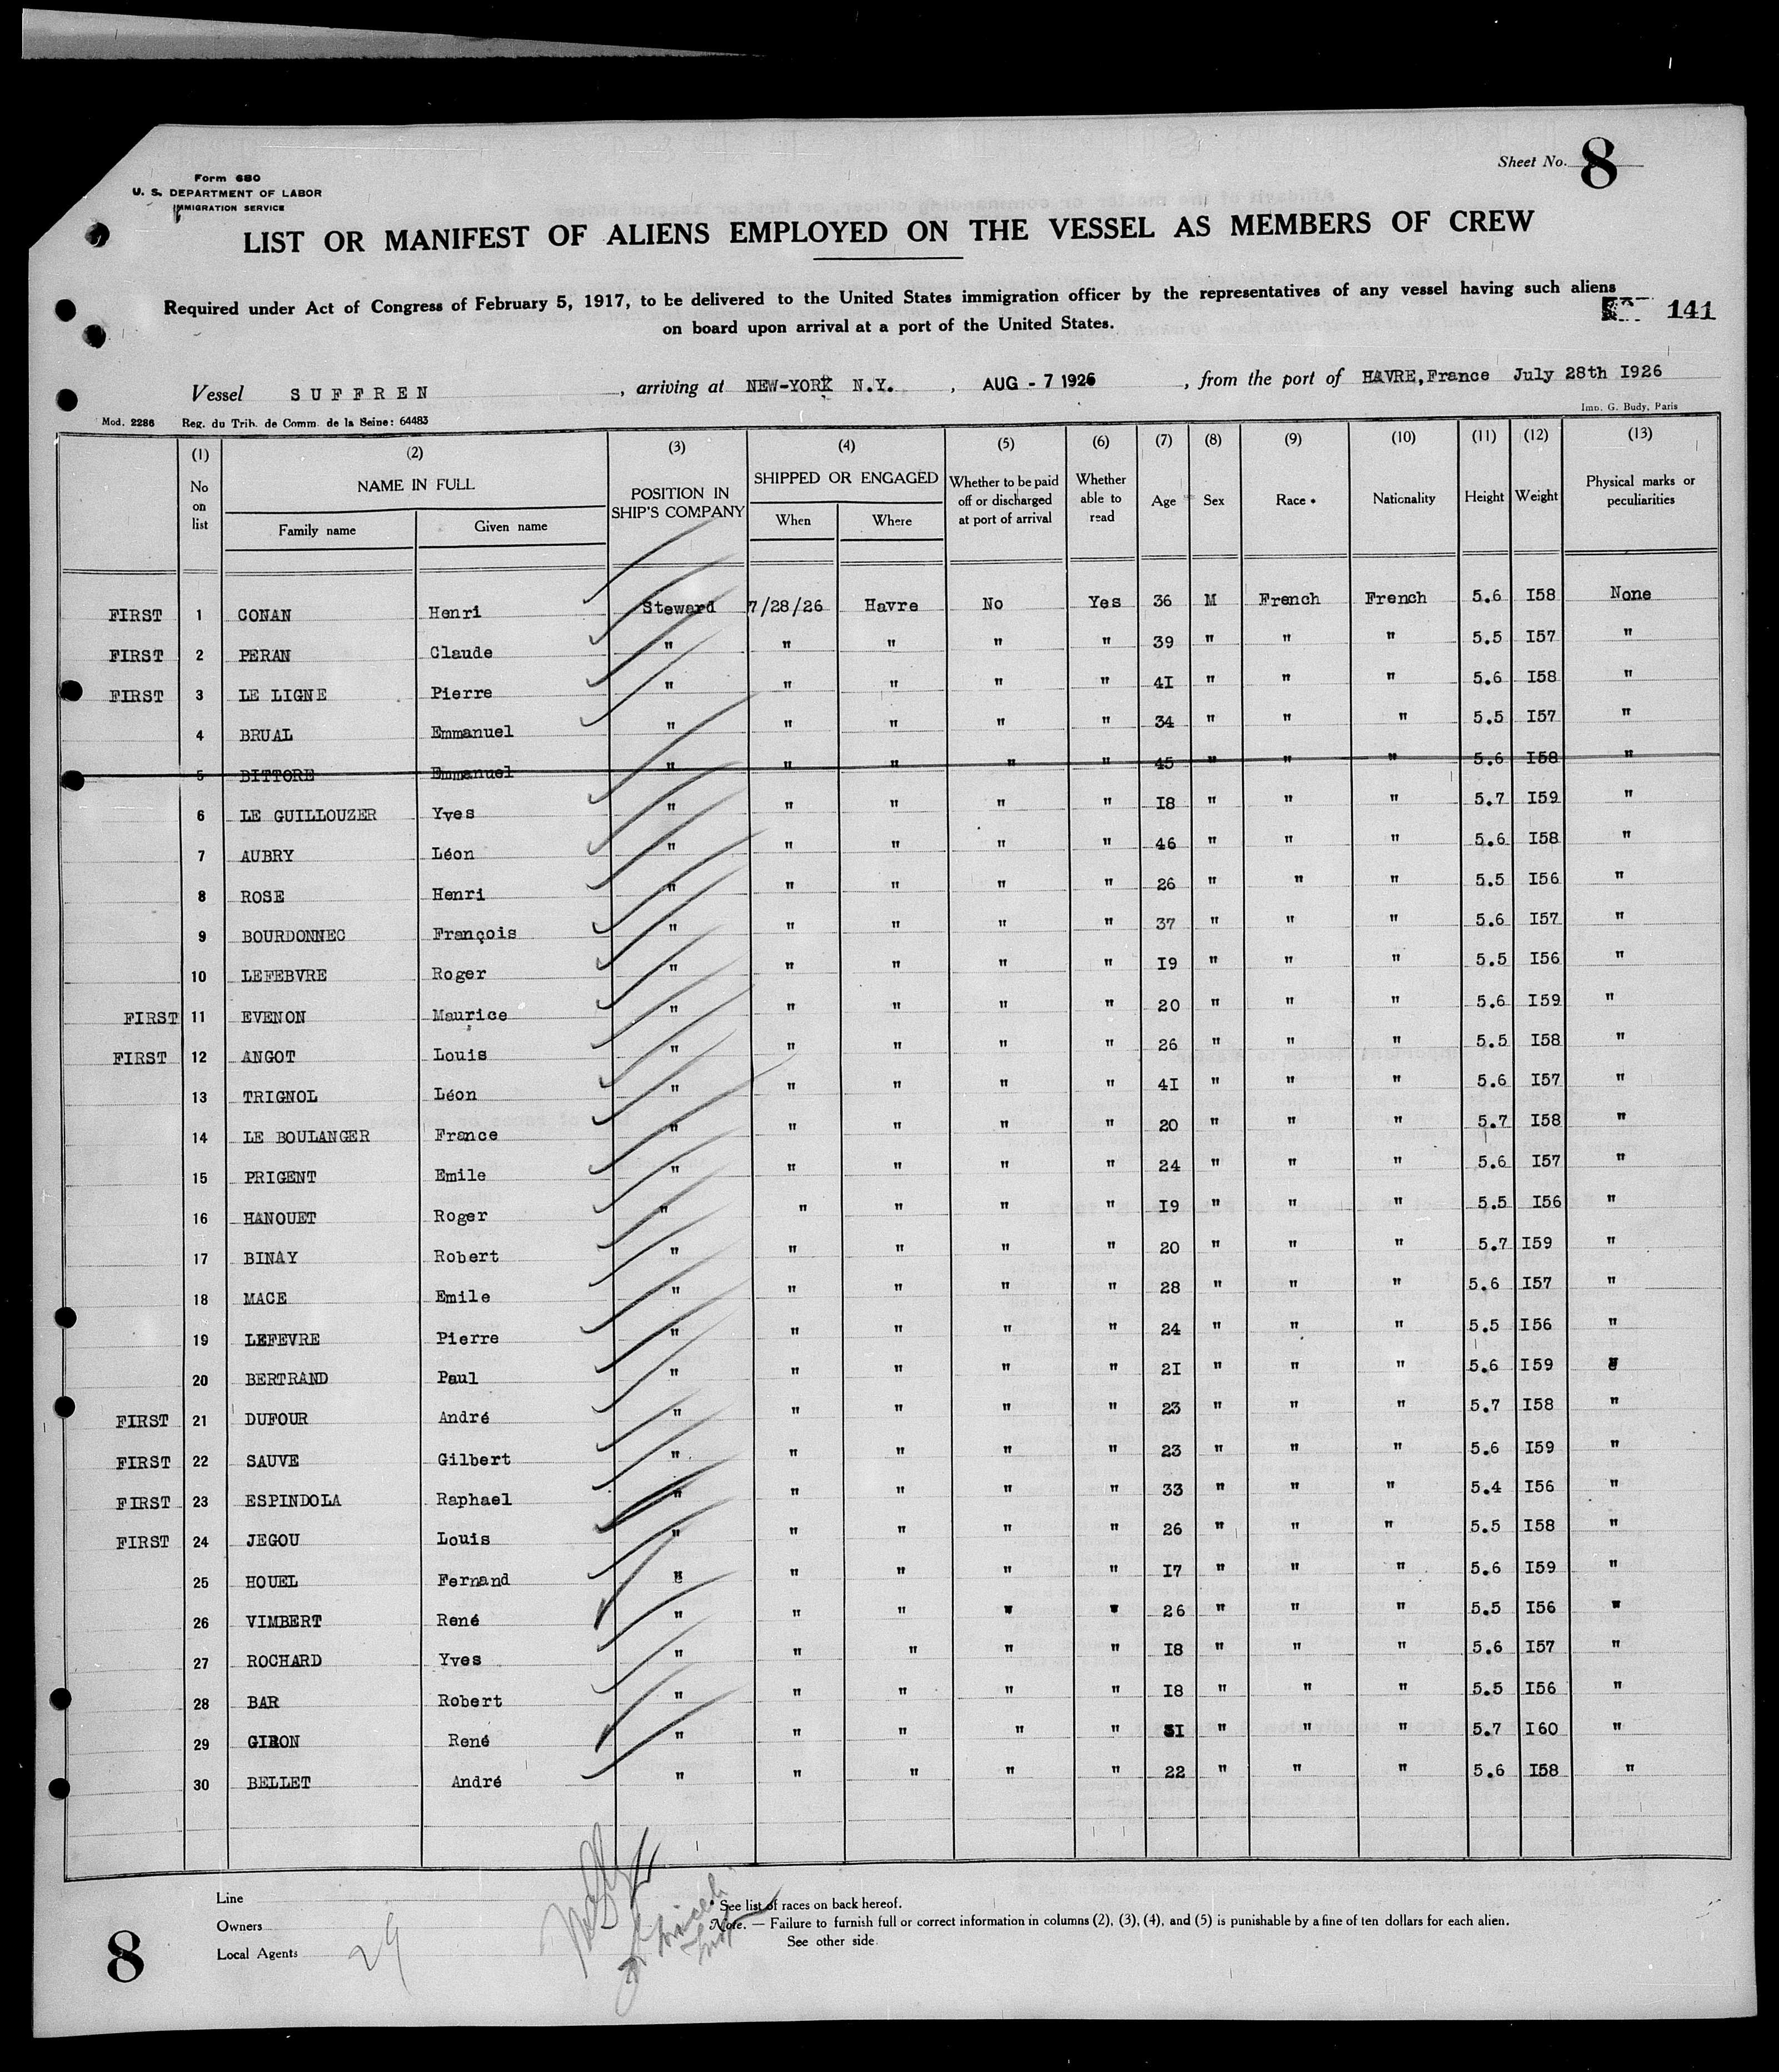 Sheet No. 8
Form 680
U. S. DEPARTMENT OF LABOR
IMMIGRATION SERVICE
LIST OR MANIFEST OF ALIENS EMPLOYED ON THE VESSEL AS MEMBERS OF CREW
Required under Act of Congress of February 5, 1917, to be delivered to the United States immigration officer by the representatives of any vessel having such aliens
on board upon arrival at a port of the United States.
141
Vessel SUFFREN , arriving at NEW-YORK N.Y. , AUG - 7 1926 , from the port of HAVRE,France July 28th I926
Mod. 2286 Reg. du Trib. de Comm. de la Seine: 64483 Imp. G. Budy, Paris
(1) (2) (3) (4) (5) (6) (7) (8) (9) (10) (11) (12) (13)
No on list NAME IN FULL POSITION IN SHIP'S COMPANY SHIPPED OR ENGAGED Whether to be paid off or discharged at port of arrival Whether able to read Age Sex Race • Nationality Height Weight Physical marks or peculiarities
Family name Given name When Where
FIRST 1 CONAN Henri Steward 7/28/26 Havre No Yes 36 M French French 5.6 I58 None
FIRST 2 PERAN Claude " " " " " 39 " " " 5.5 I57 "
FIRST 3 LE LIGNE Pierre " " " " " 4I " " " 5.6 I58 "
4 BRUAL Emmanuel " " " " " 34 " " " 5.5 I57 "
5 BITTORE Emmanuel " " " " " 45 " " " 5.6 I58 "
6 LE GUILLOUZER Yves " " " " " I8 " " " 5.7 I59 "
7 AUBRY Léon " " " " " 46 " " " 5.6 I58 "
8 ROSE Henri " " " " " 26 " " " 5.5 I56 "
9 BOURDONNEC François " " " " " 37 " " " 5.6 I57 "
10 LEFEBVRE Roger " " " " " I9 " " " 5.5 I56 "
FIRST 11 EVENON Maurice " " " " " 20 " " " 5.6 I59 "
FIRST 12 ANGOT Louis " " " " " 26 " " " 5.5 I58 "
13 TRIGNOL Léon " " " " " 4I " " " 5.6 I57 "
14 LE BOULANGER France " " " " " 20 " " " 5.7 I58 "
15 PRIGENT Emile " " " " " 24 " " " 5.6 I57 "
16 HANOUET Roger " " " " " I9 " " " 5.5 I56 "
17 BINAY Robert " " " " " 20 " " " 5.7 I59 "
18 MACE Emile " " " " " 28 " " " 5.6 I57 "
19 LEFEVRE Pierre " " " " " 24 " " " 5.5 I56 "
20 BERTRAND Paul " " " " " 2I " " " 5.6 I59 "
FIRST 21 DUFOUR André " " " " " 23 " " " 5.7 I58 "
FIRST 22 SAUVE Gilbert " " " " " 23 " " " 5.6 I59 "
FIRST 23 ESPINDOLA Raphael " " " " " 33 " " " 5.4 I56 "
FIRST 24 JEGOU Louis " " " " " 26 " " " 5.5 I58 "
25 HOUEL Fernand " " " " " I7 " " " 5.6 I59 "
26 VIMBERT René " " " " " 26 " " " 5.5 I56 "
27 ROCHARD Yves " " " " " I8 " " " 5.6 I57 "
28 BAR Robert " " " " " I8 " " " 5.5 I56 "
29 GIRON René " " " " " 3I " " " 5.7 I60 "
30 BELLET André " " " " " 22 " " " 5.6 I58 "
Line
Owners
Local Agents
29
• See list of races on back hereof.
Note. — Failure to furnish full or correct information in columns (2), (3), (4), and (5) is punishable by a fine of ten dollars for each alien.
See other side.
8